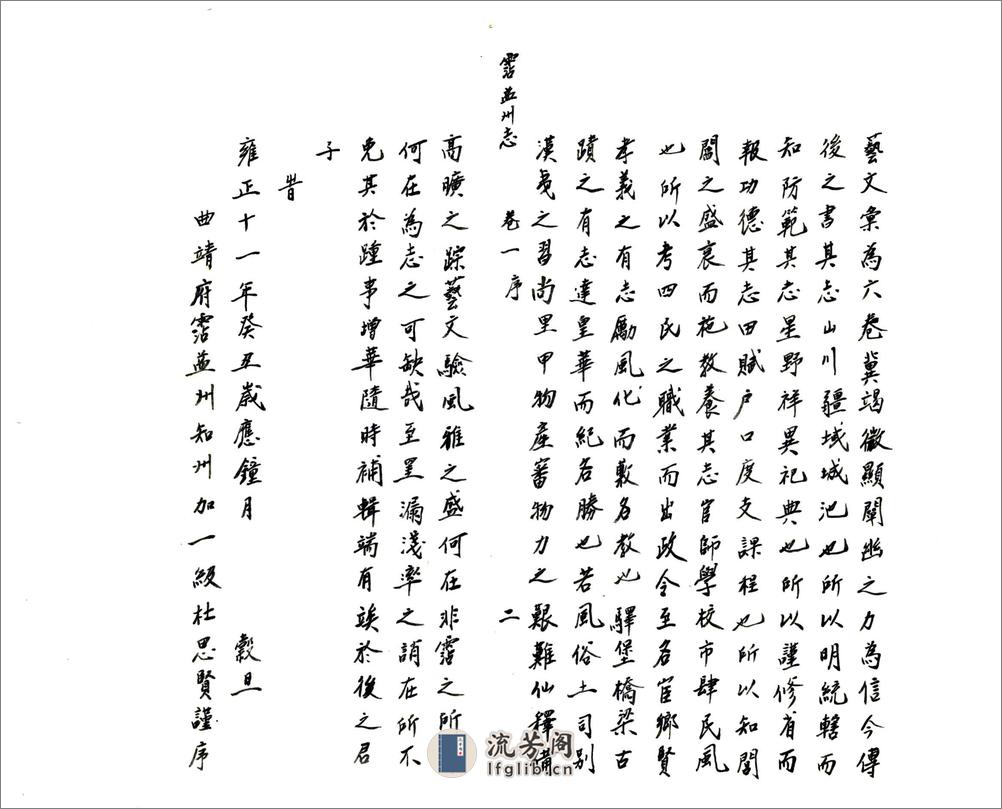 藝文彙為六卷冀竭微顯闡幽之力為信今傳
後之書其志山川疆域城池也所以明統轄而
知防範其志星野祥異祀典也所以謹修省而
報功德其志田賦戶口度支課程也所以知閭
閻之盛衰而施教養其志官師學校市肆民風
也所以考四民之職業而出政令至名宦鄉賢
孝義之有志勵風化而敷名教也驛堡橋梁古
蹟之有志達皇華而紀名勝也若風俗土司別
漢夷之習尚里甲物產審物力之艱難仙釋備
霑益州志 卷一序 二
高曠之踪藝文驗風雅之盛何在非霑之所
何在為志之可缺哉至罣漏淺率之誚在所不
免其於踵事增華隨時補輯端有竢於後之君
子
峕
雍正十一年癸丑歲應鐘月 穀旦
曲靖府霑益州知州加一級杜思賢謹序
流芳阁
lfglib.cn